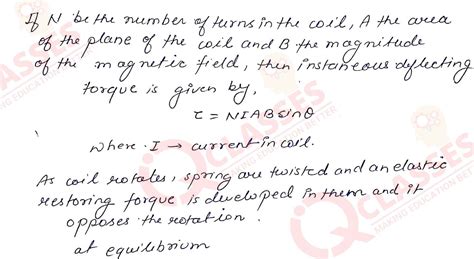 If N be the number of turns in the coil, A the area
of the plane of the coil and B the magnitude
of the magnetic field, then instaneous deflecting
torque is given by,
τ = NIABsinθ
where I → current in coil.
As coil rotates, spring are twisted and an elastic
restoring torque is developed in them and it
opposes the rotation.
at equilibrium